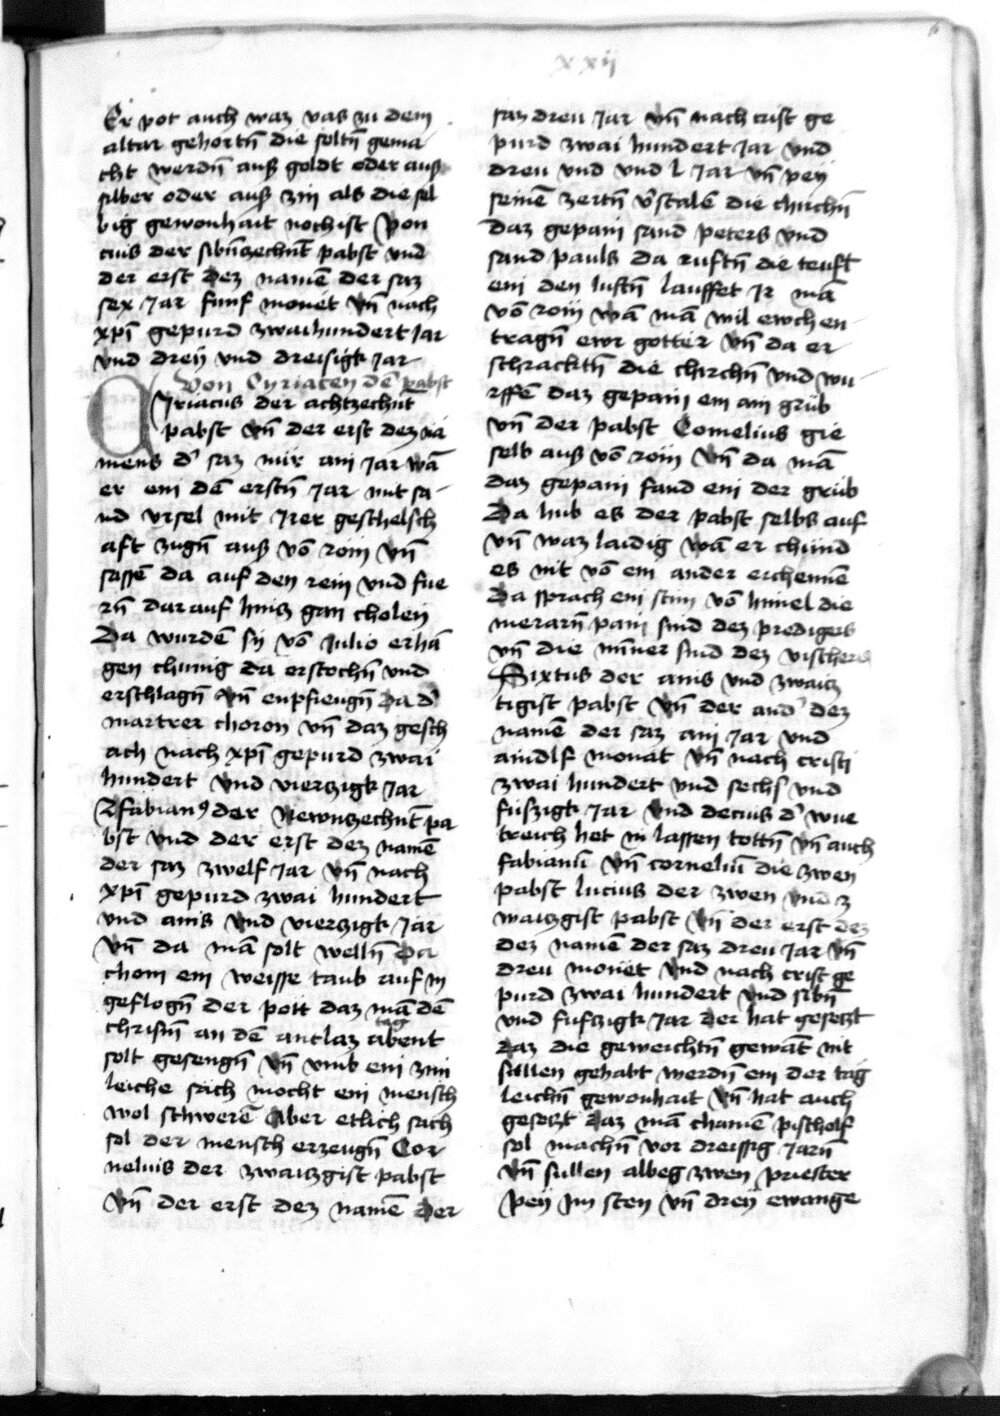 xxij
Er pot auch waz vas zu dem
altar gehortn̄ die soltn̄ gema
cht werdn̄ auß goldt oder auß
silber oder auß zin als die sel
big gewonhait noch ist Pon
cius der sibn̄zechnt̄ pabst vnd
der erst dez namē der saz
sex Jar funf monet vn̄ nach
xp̄i gepurd zwaihundert Jar
vnd dreÿ vnd dreisigk Jar
Von Ciriacen dē pabst
Ciriacus der achtzechnt̄
pabst vn̄ der erst dez na
mens d' saz nur ain Jar wā
er in dē erstn̄ Jar mit sa
nd vrsel mit Jrer geschelsch
aft zugn̄ auß vō rom vn̄
sassē da auf den rein vnd fue
rn̄ dar auf hincz gan cholen
Da wurdē sÿ vō Julio erhā
gen chunig da erstochn̄ vnd
erschlagn̄ vn̄ enpfiengn̄ da d'
martrer choron vn̄ daz gesch
ach nach xp̄i gepurd zwai
hundert vnd vierczigk Jar
Fabian9 der Newnzechnt̄ pa
bst vnd der erst dez namē
der saz zwelf Jar vn̄ nach
xp̄i gepurd zwai hundert
vnd ains vnd vierzigk Jar
vn̄ da mā solt welln̄ Da
chom ein weisse taub auf in
geflogn̄ der pott daz mā dē
chrismn̄ an dē antlaz tag abent
solt gesengn̄ vn̄ vmb ein zim
leiche sach mocht ein mensch
wol swerē Aber etlich sach
sol der mensch erzeugn̄ Cor
nelius der zwaizgist pabst
vn̄ der erst dez namē der
saz dreu Jar vn̄ nach crist ge
purd zwai hundert Jar vnd
dreu vnd vnd l Jar vn̄ peÿ
seinē zeitn̄ v'stalē die chirchn̄
daz gepain sand peters vnd
sand pauls da ruftn̄ die teufl
in den luftn̄ lauffet Jr mā
vō rom wā mā wil ewch en
tragn̄ ewr gotter vn̄ da er
schracktn̄ die chirchn̄ vnd wu
rffē daz gepain in ain grub
vn̄ der pabst Cornelius gie
selb auß vō rom vn̄ da mā
daz gepain fand in der grub
Da hub es der pabst selbs auf
vn̄ waz laidig wā er chund
es nit vō ein ander erchennē
Da sprach ein stim vō himel die
merarn̄ pain sind dez predigers
vn̄ die minner sind dez vischers
Sixtus der ains vnd zwaiz
tigist pabst vn̄ der and' dez
namē der saz ain Jar vnd
aindlf monat vn̄ nach cristi
zwai hundert vnd sechs vnd
fufzigk Jar vnd decius d' wue
treich het in lassen tottn̄ vn̄ auch
fabianū vn̄ corneliū die zwen
pabst lucius der zwen vnd z
waizgist pabst vn̄ der erst dez
dez namē der saz dreu Jar vn̄
dreu monet vnd nach crist ge
purd zwai hundert vnd sibn̄
vnd fufzigk Jar der hat gesetzt
daz die geweichtn̄ gewāt nit
sullen gehabt werdn̄ in der tag
leichn̄ gewonhait vn̄ hat auch
gesetzt daz mā chainē pischolf
sol machn̄ vor dreissig Jarn̄
vn̄ sullen albeg zwen priester
peÿ im sten vn̄ dreÿ ewange